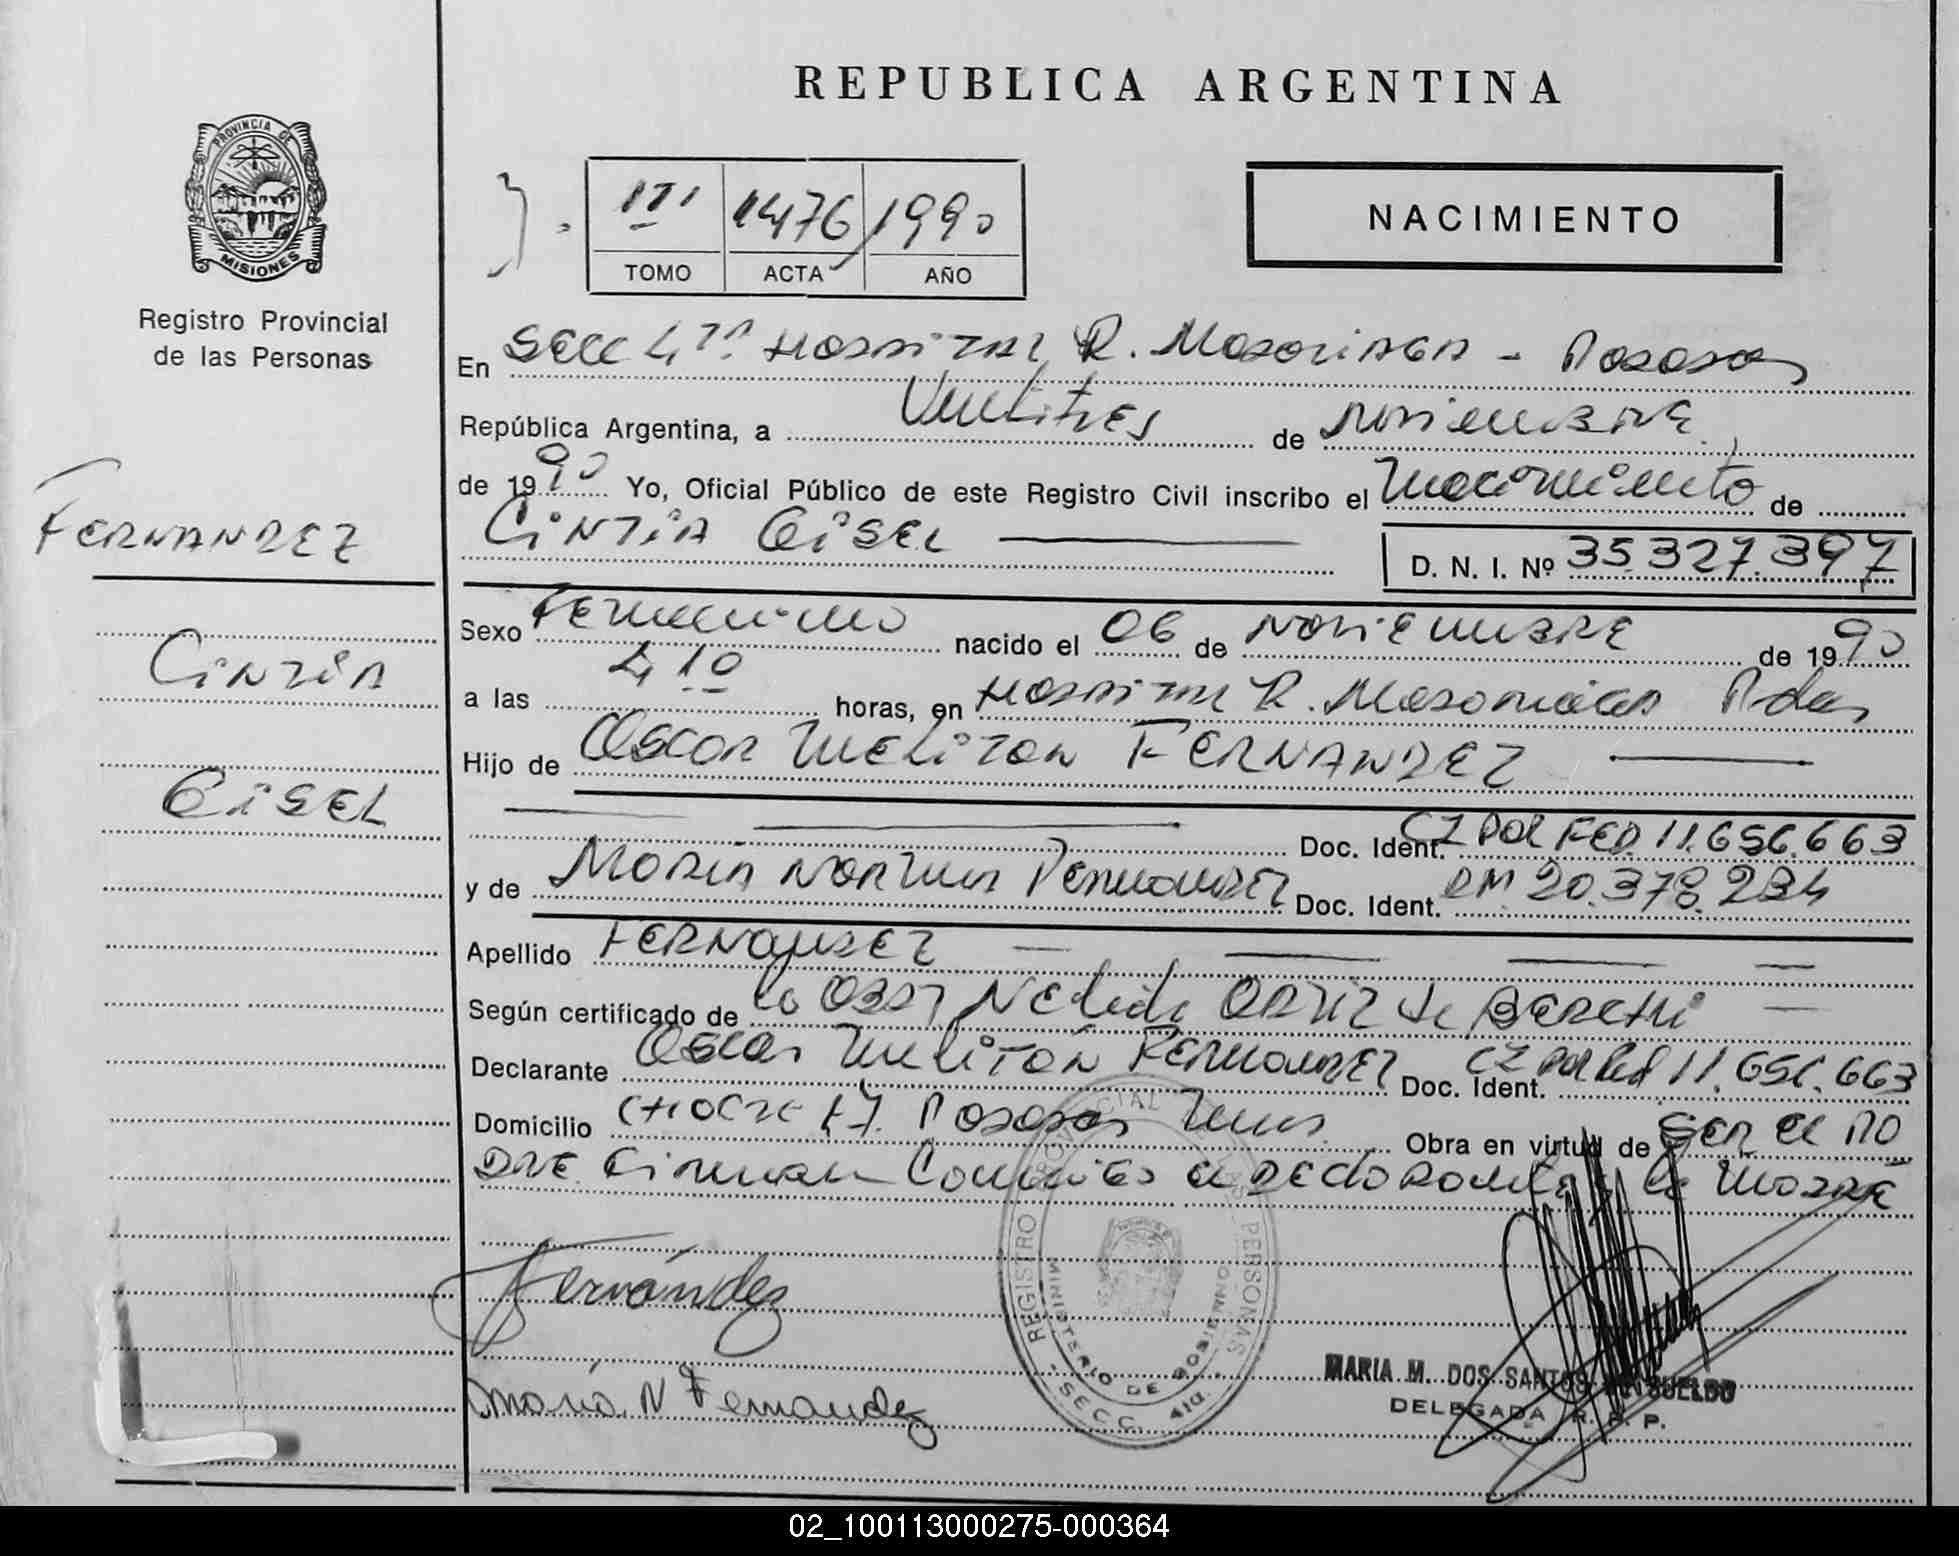 REPUBLICA ARGENTINA
PROVINCIA DE
MISIONES
Registro Provincial
de las Personas
III 1476 1990
TOMO ACTA AÑO
NACIMIENTO
En Secc 4ta Hospital R. Madariaga - Posadas
República Argentina, a Veintitres de Noviembre
de 1990 Yo, Oficial Público de este Registro Civil inscribo el Nacimiento de
Cintia Gisel
D. N. I. Nº 35.327.397
FERNANDEZ
Cintia
Gisel
Sexo Femenino nacido el 06 de Noviembre de 1990
a las 4 10 horas, en Hospital R. Madariaga Pdas
Hijo de Oscar Meliton FERNANDEZ
Doc. Ident. CI Pol FED. 11.656.663
y de Maria Norma Fernandez Doc. Ident. DNI 20.378.234
Apellido FERNANDEZ
Según certificado de la Obst Nelida Ortiz de
Declarante Oscar Melitón Fernandez Doc. Ident. CI Pol Fed 11.656.663
Domicilio Posadas Mnes Obra en virtud de Ser el Pa
dre. Firman la Madre
Fernández
María N Fernandez
REGISTRO PROVINCIAL DE LAS PERSONAS
MINISTERIO DE GOBIERNO
SECC. 4ta.
MARIA M. DOS SANTOS
DELEGADA R. P. P.
02_100113000275-000364